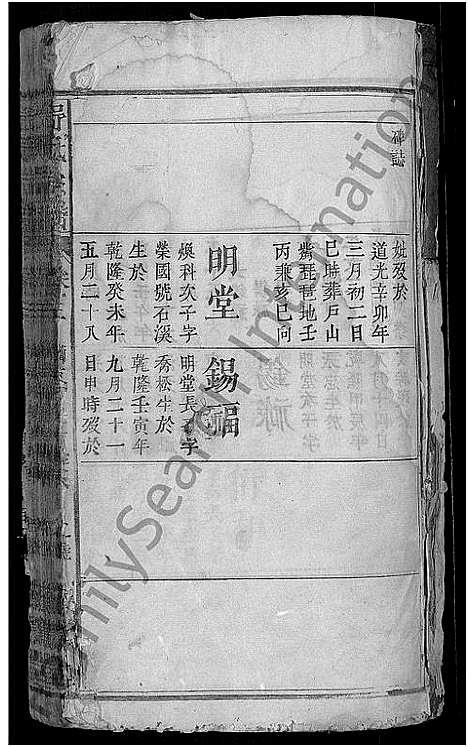 碑誌
妣歿於
道光辛卯年
三月初二日
巳時葬戸山
觜琵琶地壬
丙兼亥巳向
明堂
煥科次子字
榮國號石溪
生於
乾隆癸未年
五月二十八
錫福
明堂長子字
喬松生於
乾隆壬寅年
九月二十一
日申時歿於
FamilySearch International